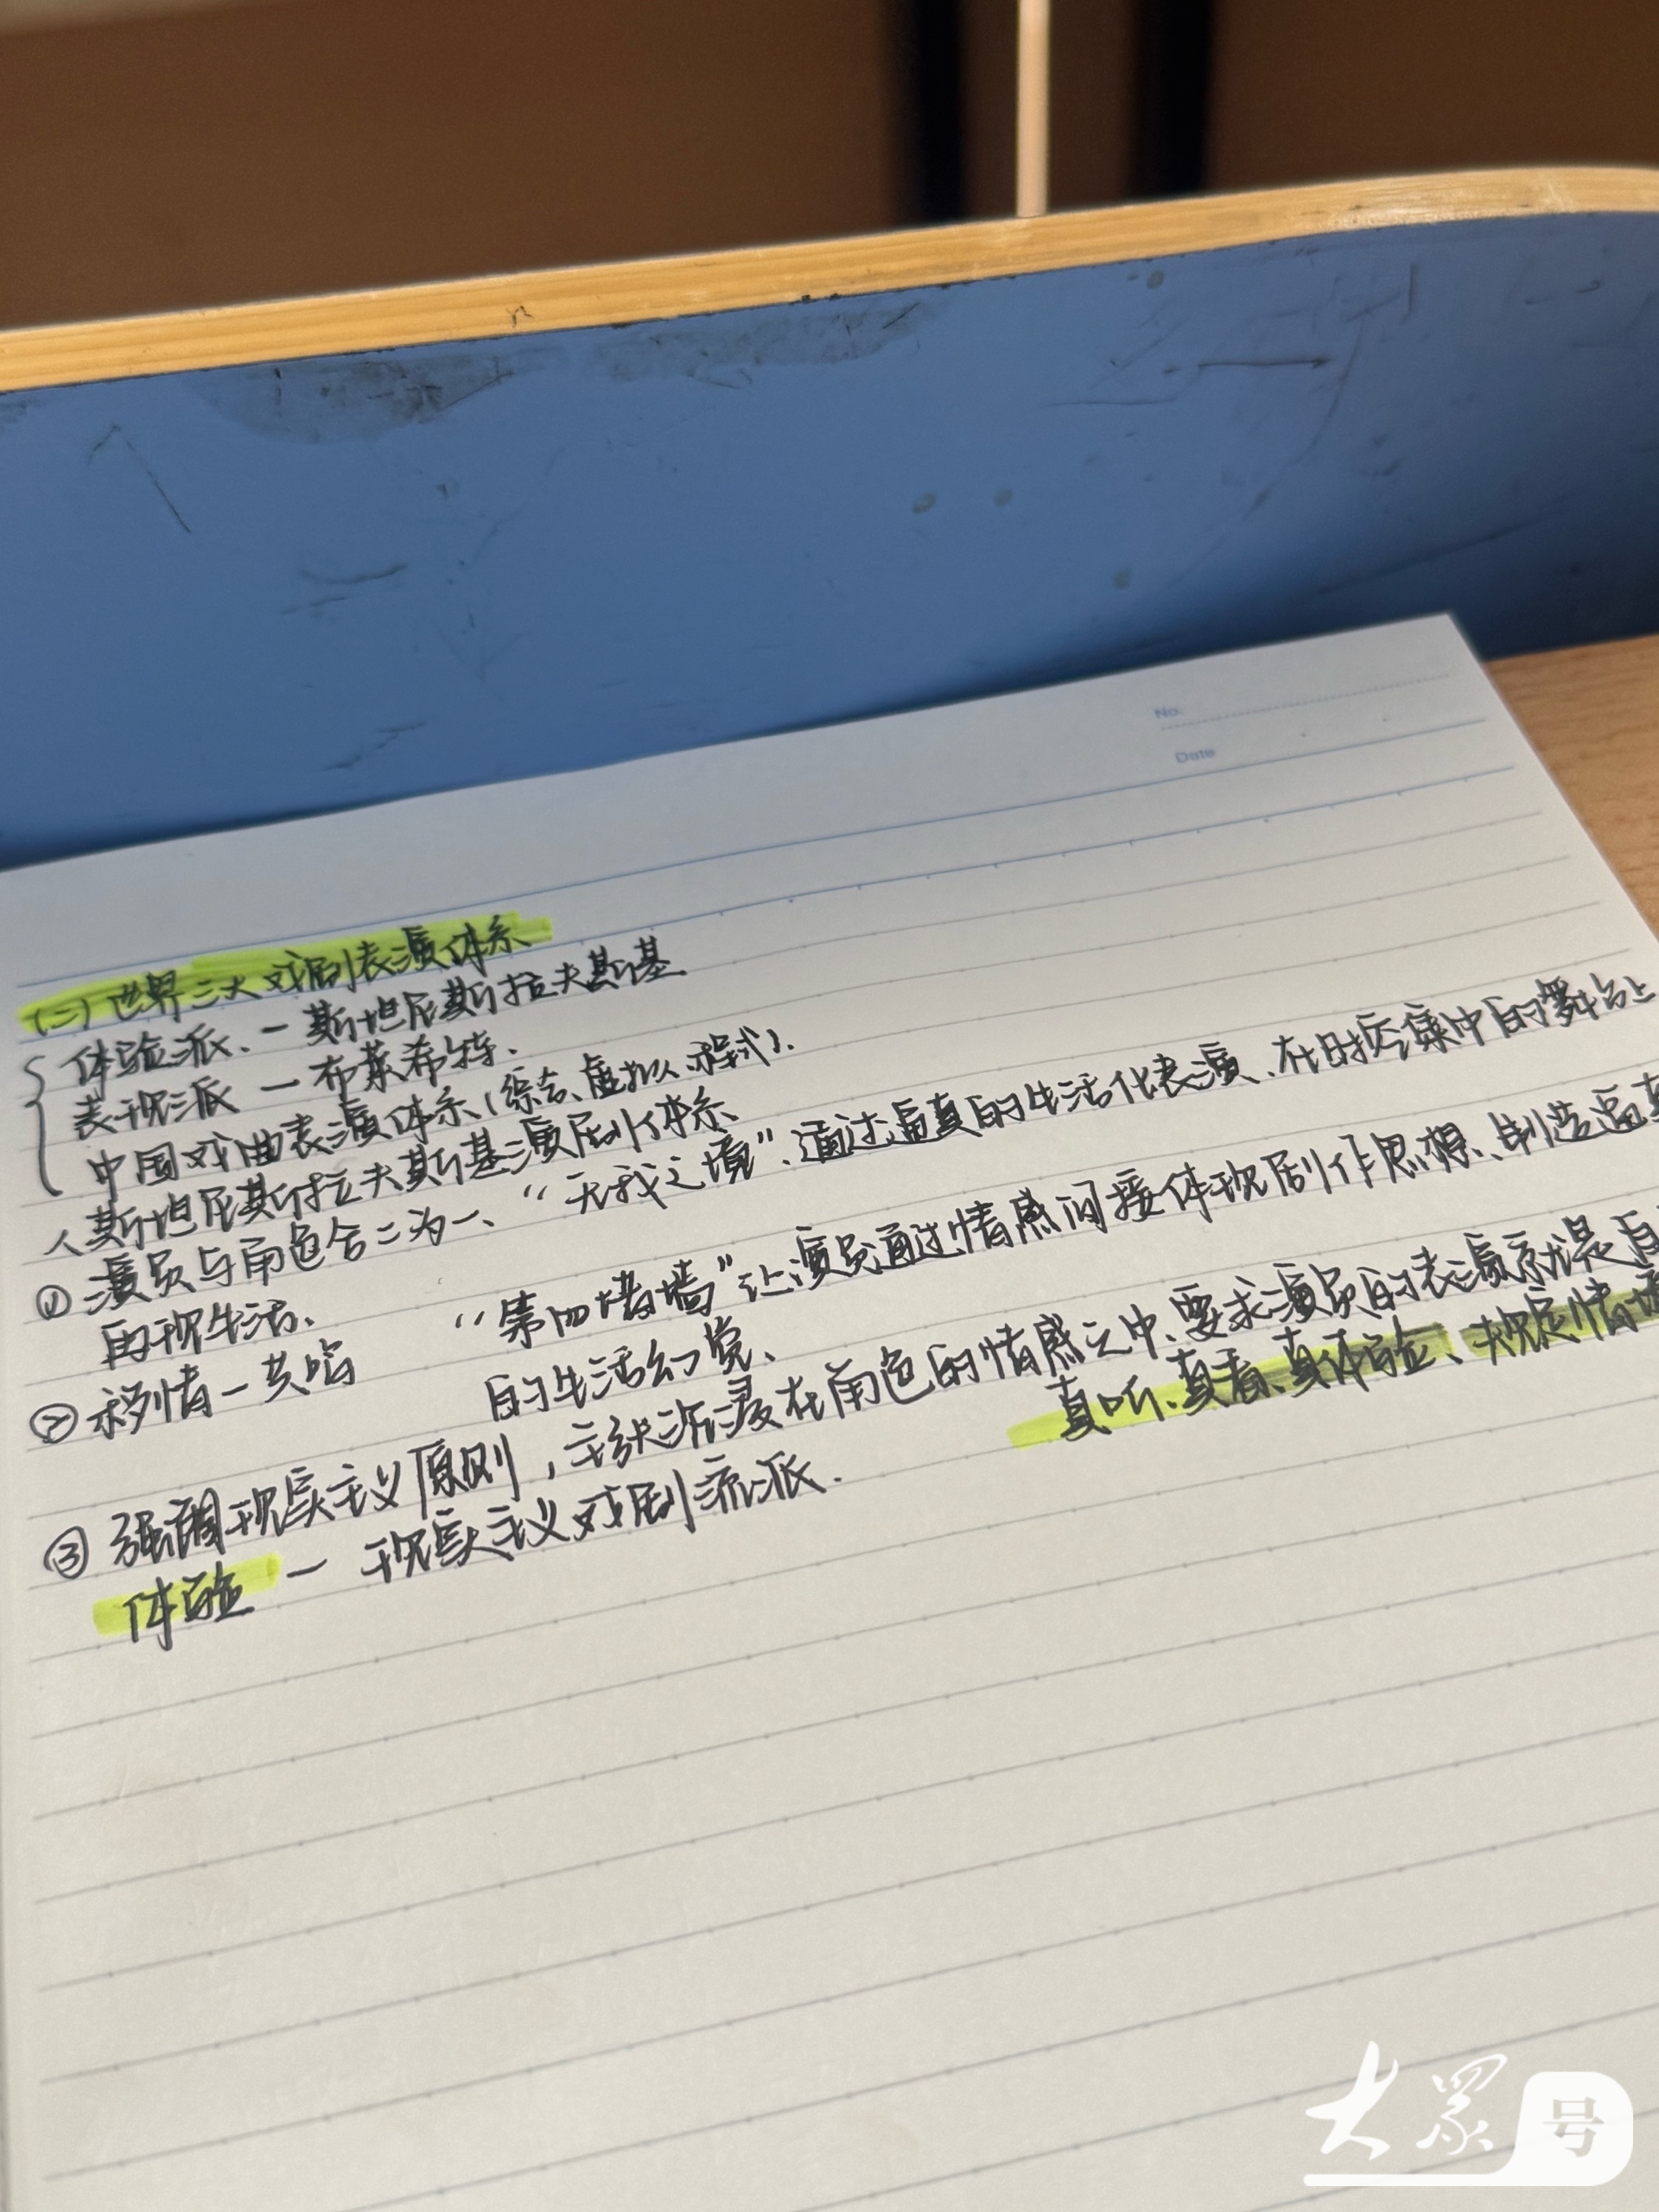 No.
Date
(二) 世界三大戏剧表演体系
体验派、— 斯坦尼斯拉夫斯基.
表现派 — 布莱希特.
中国戏曲表演体系(综合、虚拟、程式).
斯坦尼斯拉夫斯基演剧体系、
① 演员与角色合二为一、“无我之境”、通过逼真的生活化表演、在时空集中的舞台上
再现生活、
② 移情—共鸣 “第四堵墙”让演员通过情感间接体现剧作思想、制造逼真
的生活幻觉、
③ 强调现实主义原则，主张沉浸在角色的情感之中、要求演员的表演就是自
真听、真看、真体验、规定情境
体验 — 现实主义戏剧流派.
大众号